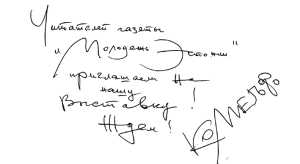 Читателей газеты
"Молодежь Эстонии"
приглашаем на
нашу
Выставку!
Ждем!